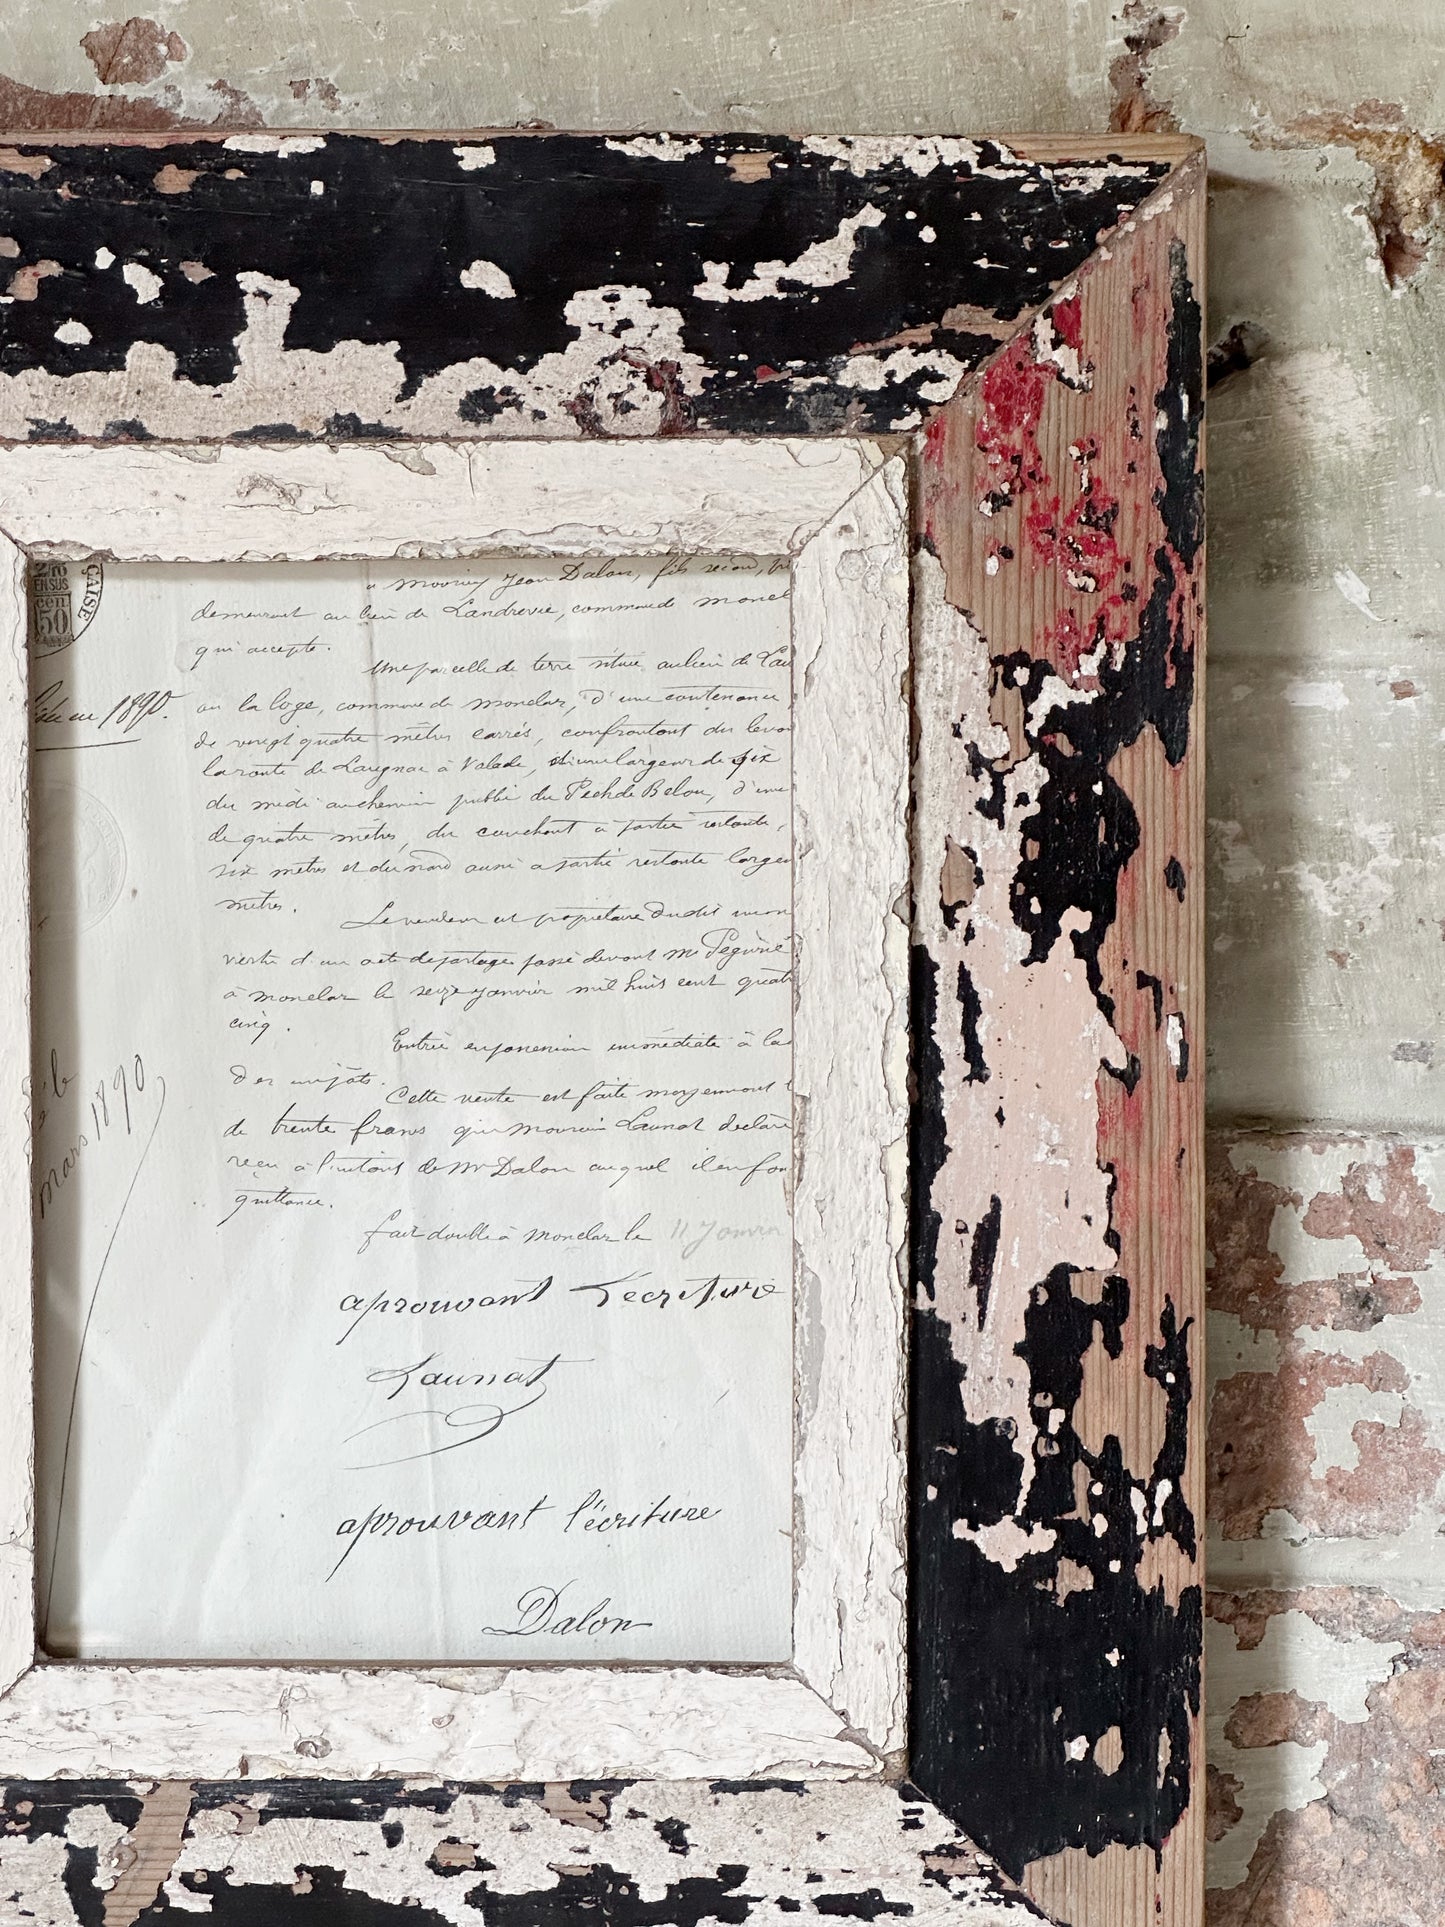 ÇAISE
50
1890.
mars 1890
a Jean Dalon, fils
demeurant au lieu de Landrevie, commune de moncl
qui accepte.
Une parcelle de terre située au lieu de Lau
ou la loge, commune de monclar, d'une contenance
de vingt quatre mètres carrés, confrontant du levan
la route de Laugnac à Valade, d'une largeur de six
du midi au chemin public du Pech de Belou, d'une
de quatre mètres, du couchant a partie restante,
six mètres et du nord aussi a partie restante largeu
mètres.
Le vendeur est propriétaire dudit
vertu d'un acte de partage passé devant Me
à monclar le seize janvier mil huit cent quatr
cinq.
Entrée en immédiate à la
des
Cette vente est faite moyennant
de trente francs que Launat déclare
reçu à l'instant de Mr Dalon auquel il en
quittance.
fait double à monclar le 11 Janvi
aprouvant L'ecriture
Launat
aprouvant l'écriture
Dalon